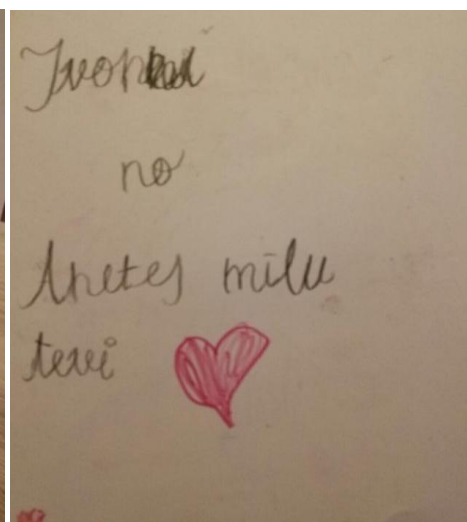 no
Anetes mīlu
tevi